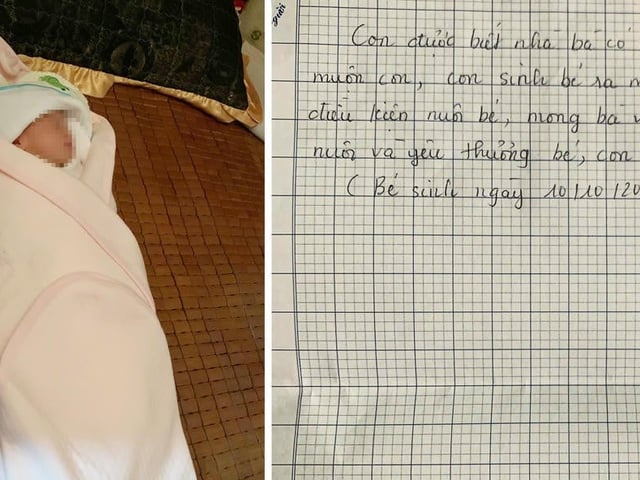 Con được biết nhà bà có
muốn con, con sinh bé ra
điều kiện nuôi bé, mong bà
nuôi và yêu thương bé, con
( Bé sinh ngày 10/10/20